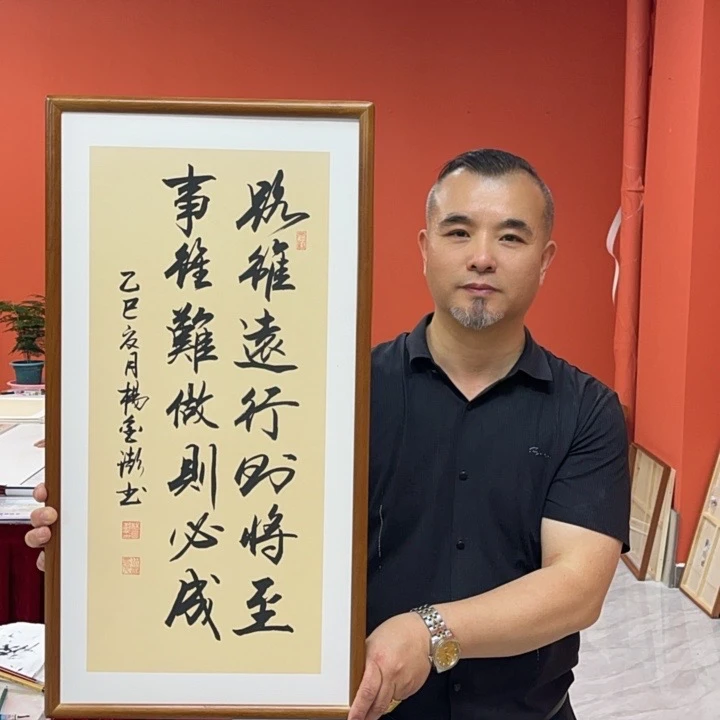 路雖遠行则將至
事雖難做則必成
乙巳夏月楊金书